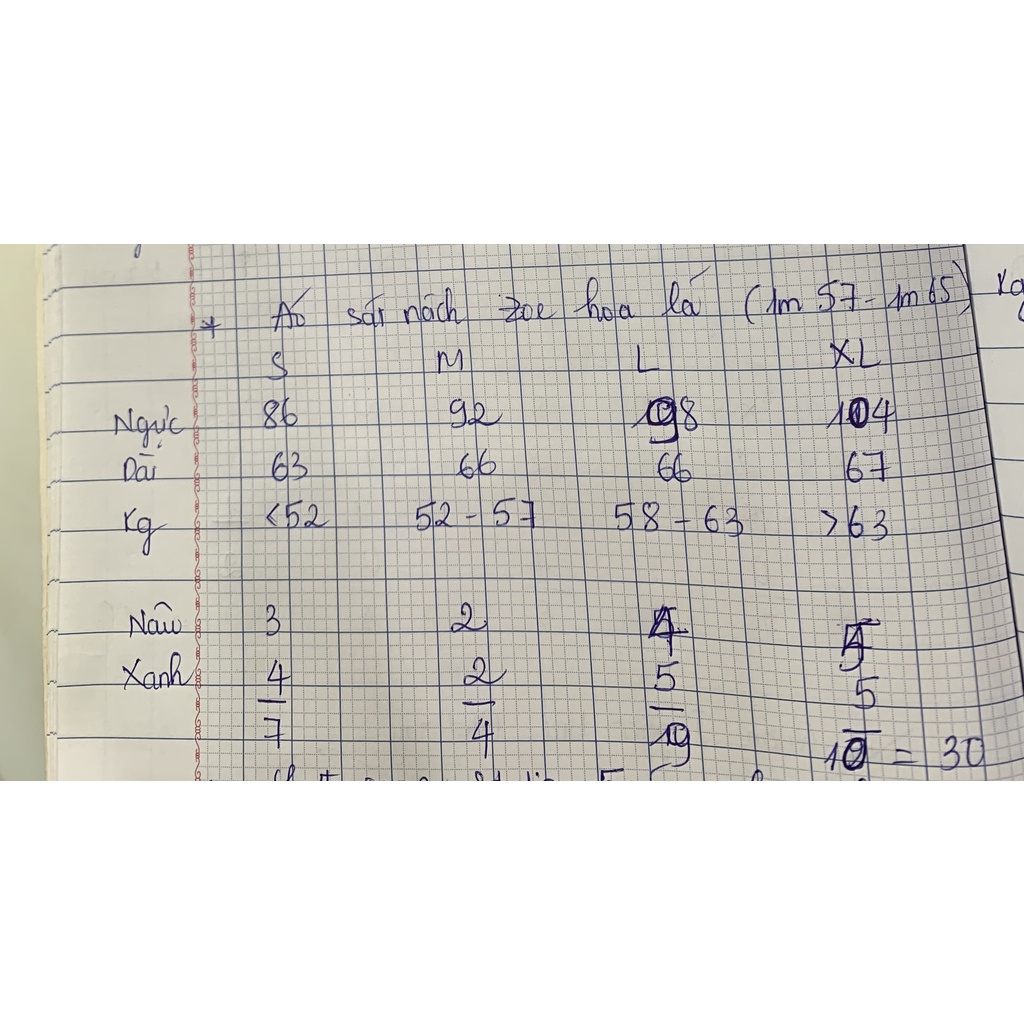 * Áo sát nách zoe hoa lá (1m 57 - 1m 65) Kg
S M L XL
Ngực 86 92 98 104
Dài 63 66 66 67
Kg <52 52 - 57 58 - 63 >63
Nâu 3 2 4 5
Xanh 4 2 5 5
7 4 9 10 = 30